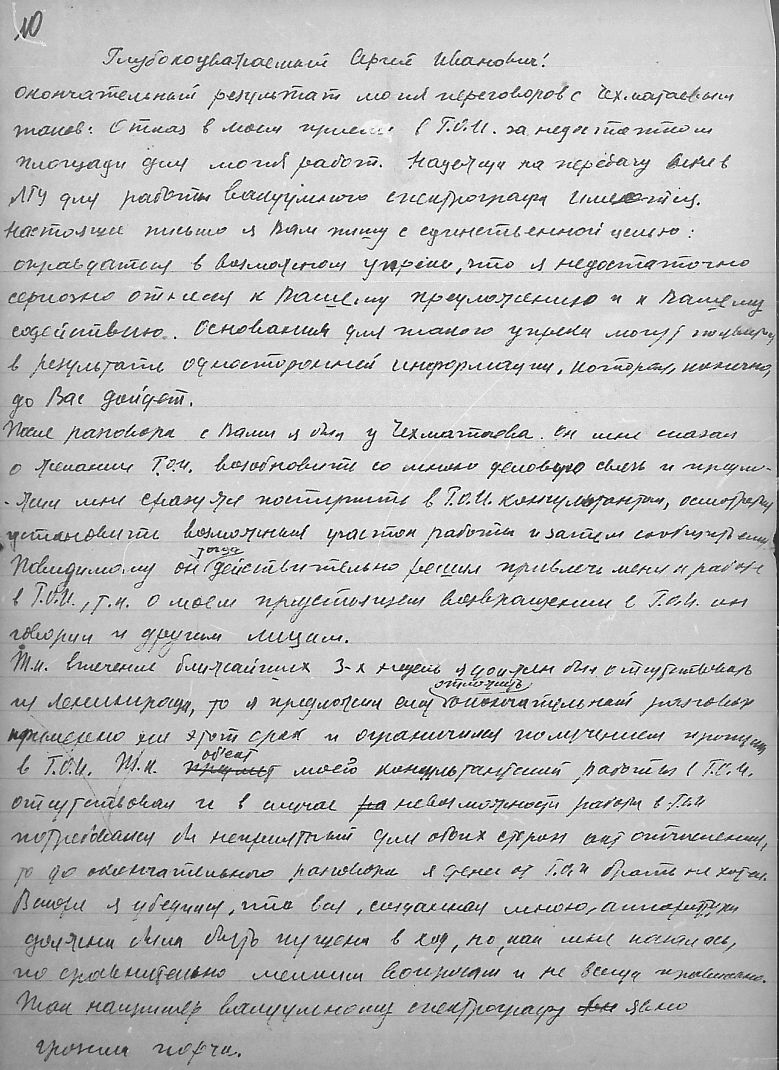 10
Глубокоуважаемый Сергей Иванович!
окончательный результат моих переговоров с Чехматаевым
таков: Отказ в моем приеме в Г.О.И. за недостатком
площади для моих работ. Надежды на передачу мне в
ЛГУ для работы вакуумного спектрографа имеются.
Настоящее письмо я Вам пишу с единственной целью:
оправдаться в возможном упреке, что я недостаточно
серьезно отнесся к Вашему предложению и к Вашему
содействию. Основания для такого упрека могут появиться
в результате односторонней информации, которая, конечно,
до Вас дойдет.
После разговора с Вами я был у Чехматаева. Он мне сказал
о желании Г.О.И. возобновить со мною деловую связь и предло-
-жил мне сразу же поступить в Г.О.И. консультантом, осмотреться
установить возможный участок работы и затем сообщить ему
Повидимому он тогда действительно решил привлечь меня к работе
в Г.О.И., т.к. о моем предстоящем возвращении в Г.О.И. он
говорил и другим лицам.
Т.к. в течение ближайших 3-х недель я должен был отсутствовать
из Ленинграда, то я предложил ему отложить окончательный разговор
примерно на этот срок и ограничился получением пропуска
в Г.О.И. Т.к. объект моей консультантской работы в Г.О.И.
отсутствовал и в случае невозможности работы в Г.О.И
потребовался бы неприятный для обоих сторон акт отчисления,
то до окончательного разговора я денег от Г.О.И брать не хотел.
Вскоре я убедился, что вся, созданная мною, аппаратура
должна была быть пущена в ход, но, как мне казалось,
по сравнительно мелким вопросам и не всегда правильно.
Так например вакуумному спектрографу явно
грозила порча.